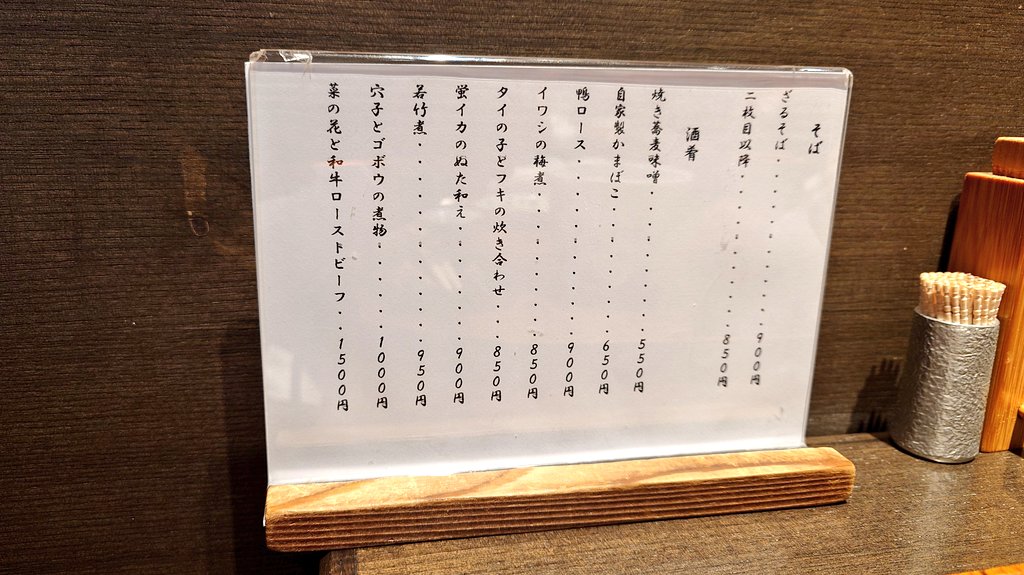 そば
ざるそば・・・・・・・・・・・900円
二枚目以降・・・・・・・・・・・850円
酒肴
焼き蕎麦味噌・・・・・・・・・・550円
自家製かまぼこ・・・・・・・・・650円
鴨ロース・・・・・・・・・・・900円
イワシの梅煮・・・・・・・・・・850円
タイの子とフキの炊き合わせ・・・850円
蛍イカのぬた和え・・・・・・・・900円
若竹煮・・・・・・・・・・・・950円
穴子とゴボウの煮物・・・・・・・1000円
菜の花と和牛ローストビーフ・・1500円